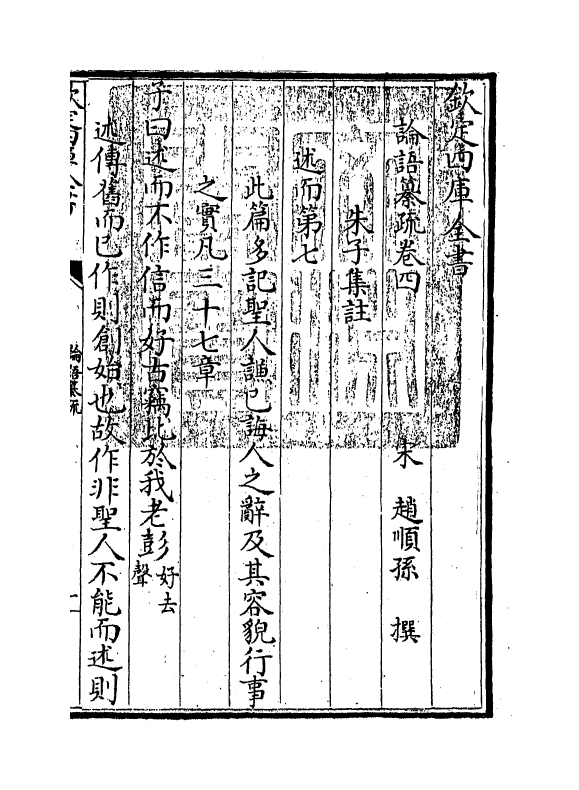 欽定四庫全書
論語纂疏卷四
宋 趙順孫 撰
朱子集註
述而第七
此篇多記聖人謙己誨人之辭及其容貌行事
之實凡三十七章
子曰述而不作信而好古竊比於我老彭好去聲
述傳舊而已作則創始也故作非聖人不能而述則
欽定四庫全書
論語纂疏